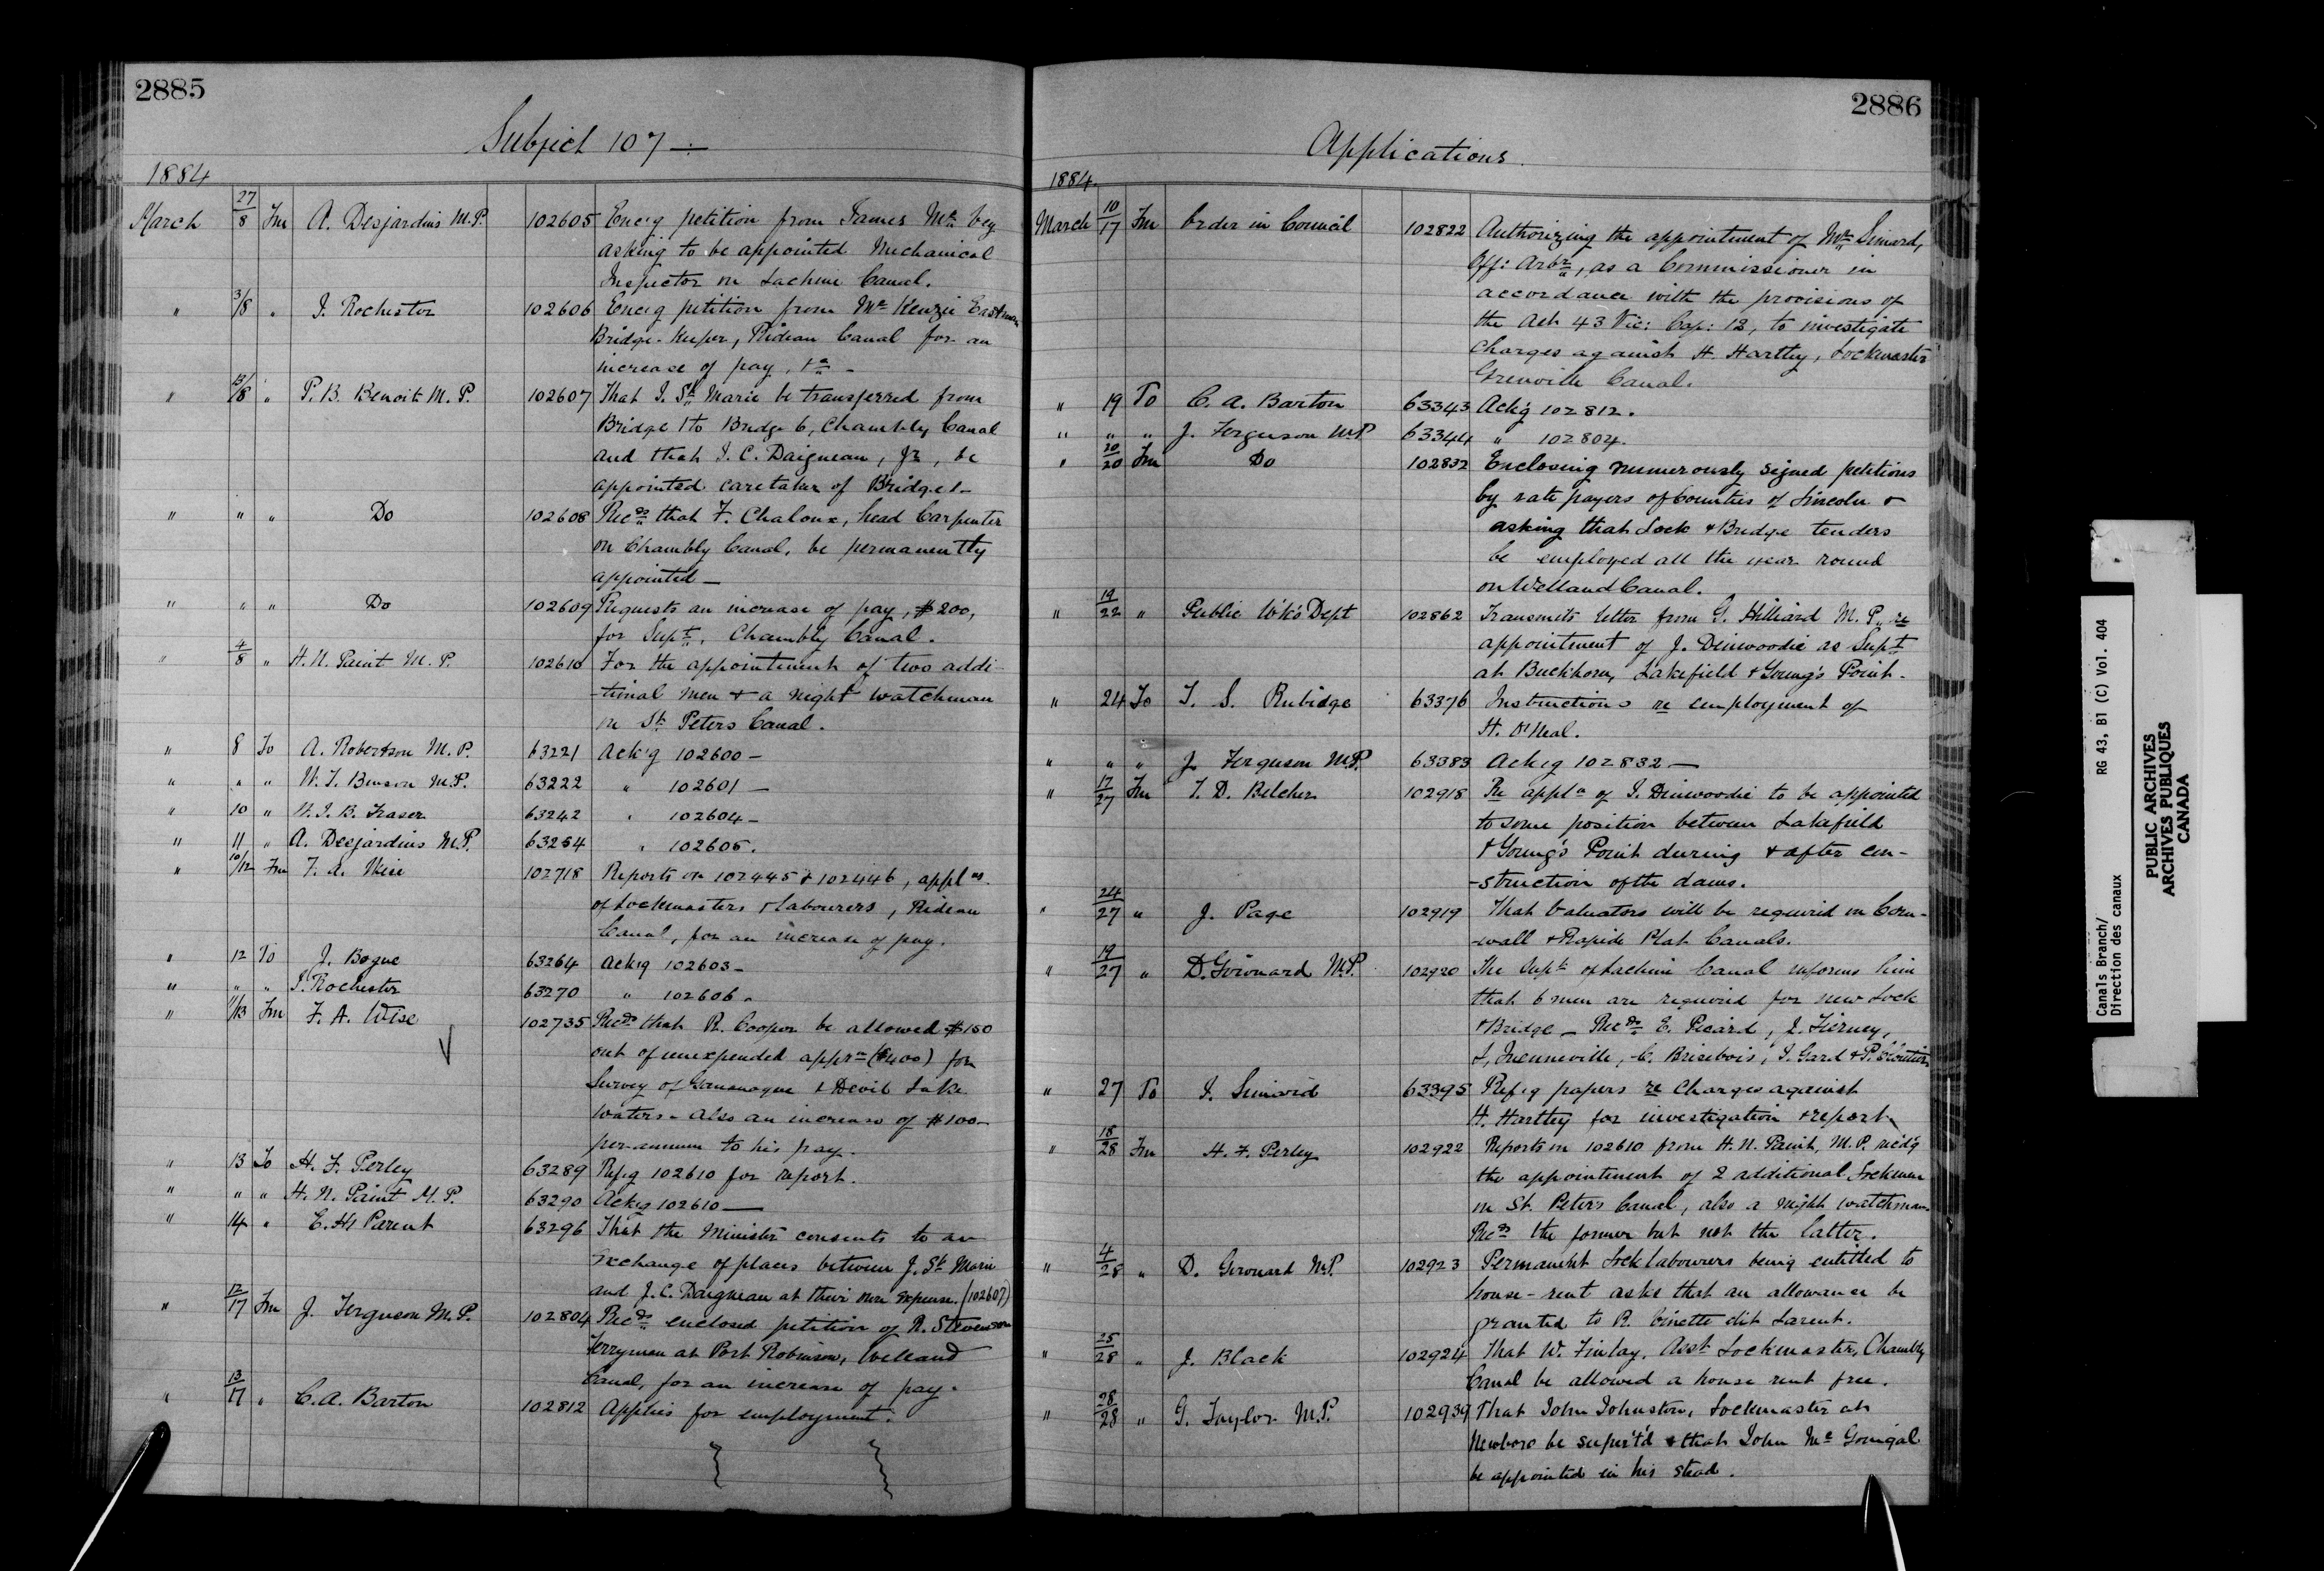 2885
Subject 107 —
1884
March 27/8 Fm A. Desjardins M.P. 102605 Enc'g petition from James Mc Vey
asking to be appointed Mechanical
Inspector on Lachine Canal.
" 3/8 " J. Rochester 102606 Enc'g petition from McKenzie Eastman
Bridge-Keeper, Rideau Canal for an
increase of pay,
" 13/8 " P. B. Benoit M. P. 102607 That J. St Marie be transferred from
Bridge 1 to Bridge 6, Chambly Canal
and that J. C. Daigneau, Jr, be
appointed caretaker of Bridge 1 —
" " " Do 102608 Recds that F. Chaloux, head Carpenter
on Chambly Canal, be permanently
appointed —
" " " Do 102609 Requests an increase of pay, $200,
for Supt. Chambly Canal.
" 4/8 " H. N. Paint M. P. 102610 For the appointment of two addi-
-tional men & a night watchman
on St. Peters Canal.
" 8 To A. Robertson M. P. 63221 Ack'g 102600 —
" " " W. T. Benson M.P. 63222 " 102601 —
" 10 " W. J. B. Fraser 63242 " 102604 —
" 11 " A. Desjardins M.P. 63254 " 102605.
" 10/12 Fm F. A. Wise 102718 Reports on 102445 & 102446, applns
of Lockmasters & labourers, Rideau
Canal, for an increase of pay.
" 12 To J. Bogue 63264 Ack'g 102603 —
" " " J. Rochester 63270 " 102606.
" 11/13 Fm F. A. Wise 102735 Recds that R. Cooper be allowed $150
out of unexpended apprn ($400) for
Survey of Gananoque & Devil Lake
waters — also an increase of $100 —
per annum to his pay.
" 13 To H. F. Perley 63289 Ref'g 102610 for report.
" " " H. N. Paint M. P. 63290 Ack'g 102610 —
" 14 " E. H. Parent 63296 That the Minister consents to an
exchange of places between J. St Marie
and J. C. Daigneau at their own expense. (102607)
" 12/17 Fm J. Ferguson M.P. 102804 Recds enclosed petition of R. Stevenson
ferryman at Port Robinson, Welland
Canal, for an increase of pay.
" 13/17 " C. A. Barton 102812 Applies for employment.
2886
Applications.
1884.
March 10/17 Fm Order in Council 102822 Authorizing the appointment of Mr Simard,
Off: Arbr, as a Commissioner in
accordance with the provisions of
the Act 43 Vic: Cap: 12, to investigate
charges against H. Hartley, Lockmaster
Grenville Canal.
" 19 To C. A. Barton 63343 Ack'g 102812.
" " " J. Ferguson M.P. 63344 " 102804.
" 20/20 Fm Do 102832 Enclosing numerously signed petitions
by rate payers of Counties of Lincoln &
asking that Lock & Bridge tenders
be employed all the year round
on Welland Canal.
" 19/22 " Public W'ks Dept 102862 Transmits letter from G. Hilliard M. P. re
appointment of J. Dinwoodie as Supt
at Buckhorn, Lakefield & Young's Point.
" 24 To T. S. Rubidge 63376 Instructions re employment of
H. O'Neal.
" " " J. Ferguson M.P. 63383 Ack'g 102832 —
" 17/27 Fm T. D. Belcher 102918 Re appln of J. Dinwoodie to be appointed
to some position between Lakefield
& Young's Point during & after con-
-struction of the dams.
" 24/27 " J. Page 102919 That Valuators will be required on Corn-
-wall & Rapide Plat Canals.
" 19/27 " D. Girouard M.P. 102920 The Supt of Lachine Canal informs him
that 6 men are required for new Lock
& Bridge — Recds E. Picard, J. Tierney,
J. Quenneville, C. Brisebois, J. Gard & P. Cloutier
" 27 To J. Simard 63395 Ref'g papers re Charges against
H. Hartley for investigation & report.
" 18/28 Fm H. F. Perley 102922 Reports on 102610 from H. N. Paint, M. P. recd'g
the appointment of 2 additional Lockmen
on St. Peter's Canal, also a night watchman
Recds the former but not the latter.
" 4/28 " D. Girouard M.P. 102923 Permanent Lock labourers being entitled to
house-rent asks that an allowance be
granted to R. Binette dit Larent.
" 25/28 " J. Black 102924 That W. Finlay, Asst Lockmaster, Chambly
Canal be allowed a house rent free.
" 28/28 " G. Taylor M.P. 102939 That John Johnston, Lockmaster at
Newboro be super't'd & that John McGonigal
be appointed in his stead.
Canals Branch/ RG 43, B1 (C) Vol. 404
Direction des canaux
PUBLIC ARCHIVES
ARCHIVES PUBLIQUES
CANADA